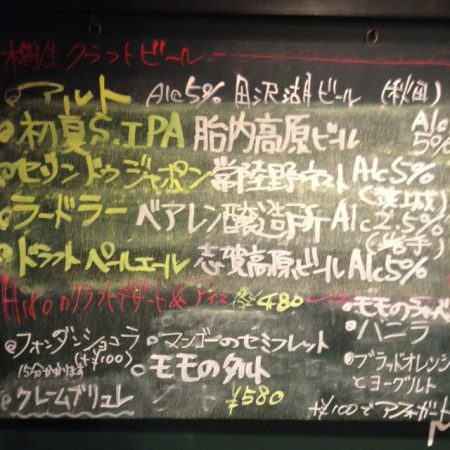 樽生クラフトビール
アルト Alc5% 田沢湖ビール (秋田)
初夏S.IPA 胎内高原ビール Alc 5%
セゾンドゥジャポン 常陸野ネスト Alc5%
(茨城)
ラードラー ベアレン醸造所 Alc2.5%
(岩手)
ドラフトペールエール 志賀高原ビール Alc5%
Hikoのクラフトデザート& アイス ¥480
モモのシャーベ
フォンダンショコラ マンゴーのセミフレット バニラ
(+¥100)
15分かかります モモのタルト ブラッドオレンジ
とヨーグルト
クレームブリュレ ¥580 +¥100でアフォガート